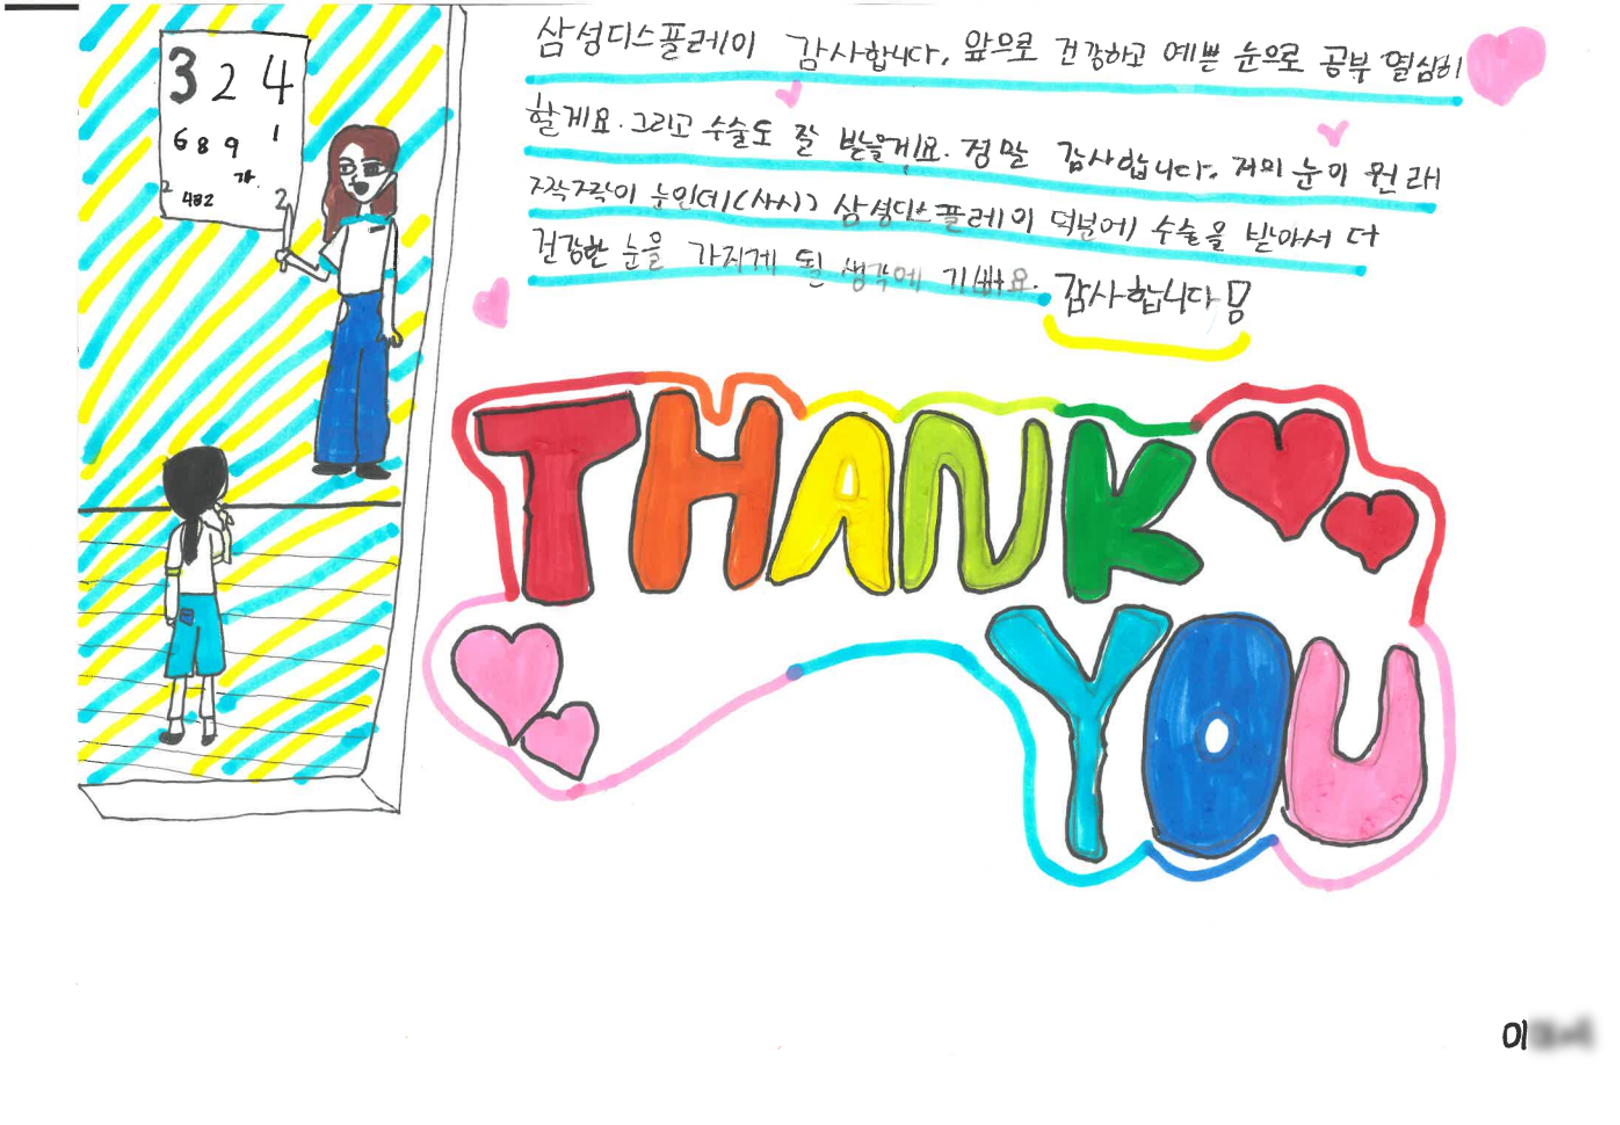 삼성디스플레이 감사합니다. 앞으로 건강하고 예쁜 눈으로 공부 열심히
할게요. 그리고 수술도 잘 받을게요. 정말 감사합니다. 저의 눈이 원래
짝짝이 눈인데(사시) 삼성디스플레이 덕분에 수술을 받아서 더
건강한 눈을 가지게 될 생각에 기뻐요. 감사합니다!
3 2 4
6 8 9 1
가.
2 482 2
THANK
YOU
이